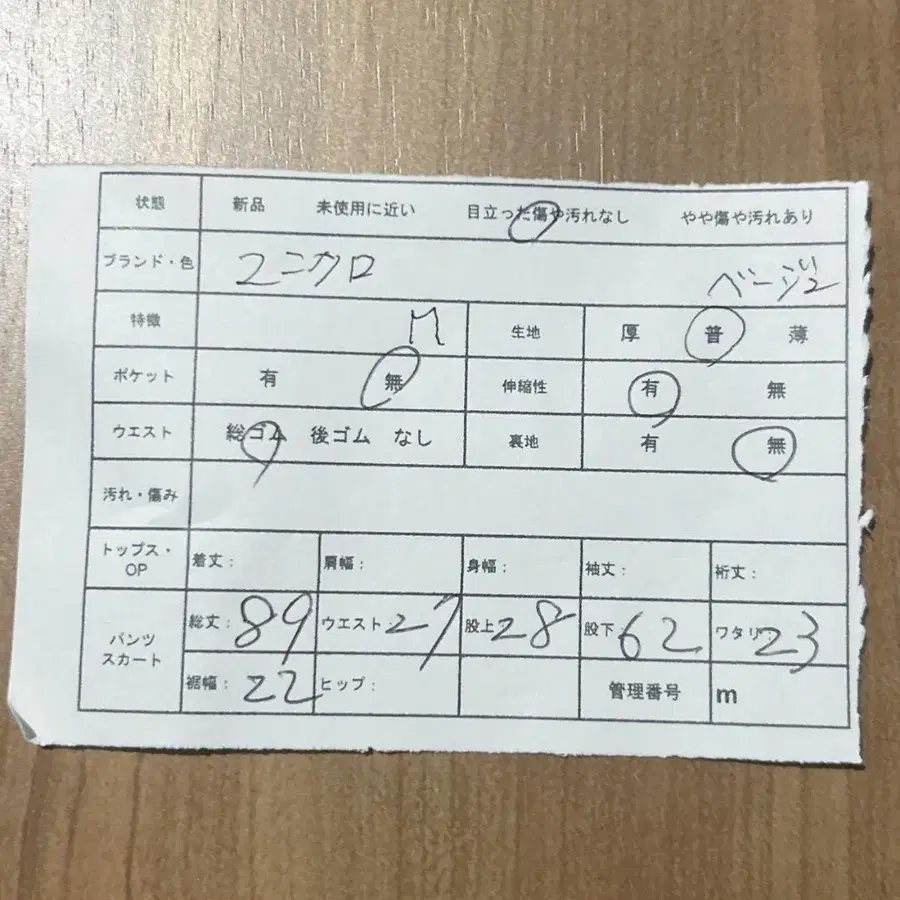 状態 新品 未使用に近い 目立った傷や汚れなし やや傷や汚れあり
ブランド・色 ユニクロ ベージュ
特徴 M 生地 厚 普 薄
ポケット 有 無 伸縮性 有 無
ウエスト 総ゴム 後ゴム なし 裏地 有 無
汚れ・傷み
トップス・OP 着丈: 肩幅: 身幅: 袖丈: 裄丈:
パンツ スカート 総丈: 89 ウエスト: 27 股上: 28 股下: 62 ワタリ: 23
裾幅: 22 ヒップ: 管理番号 m